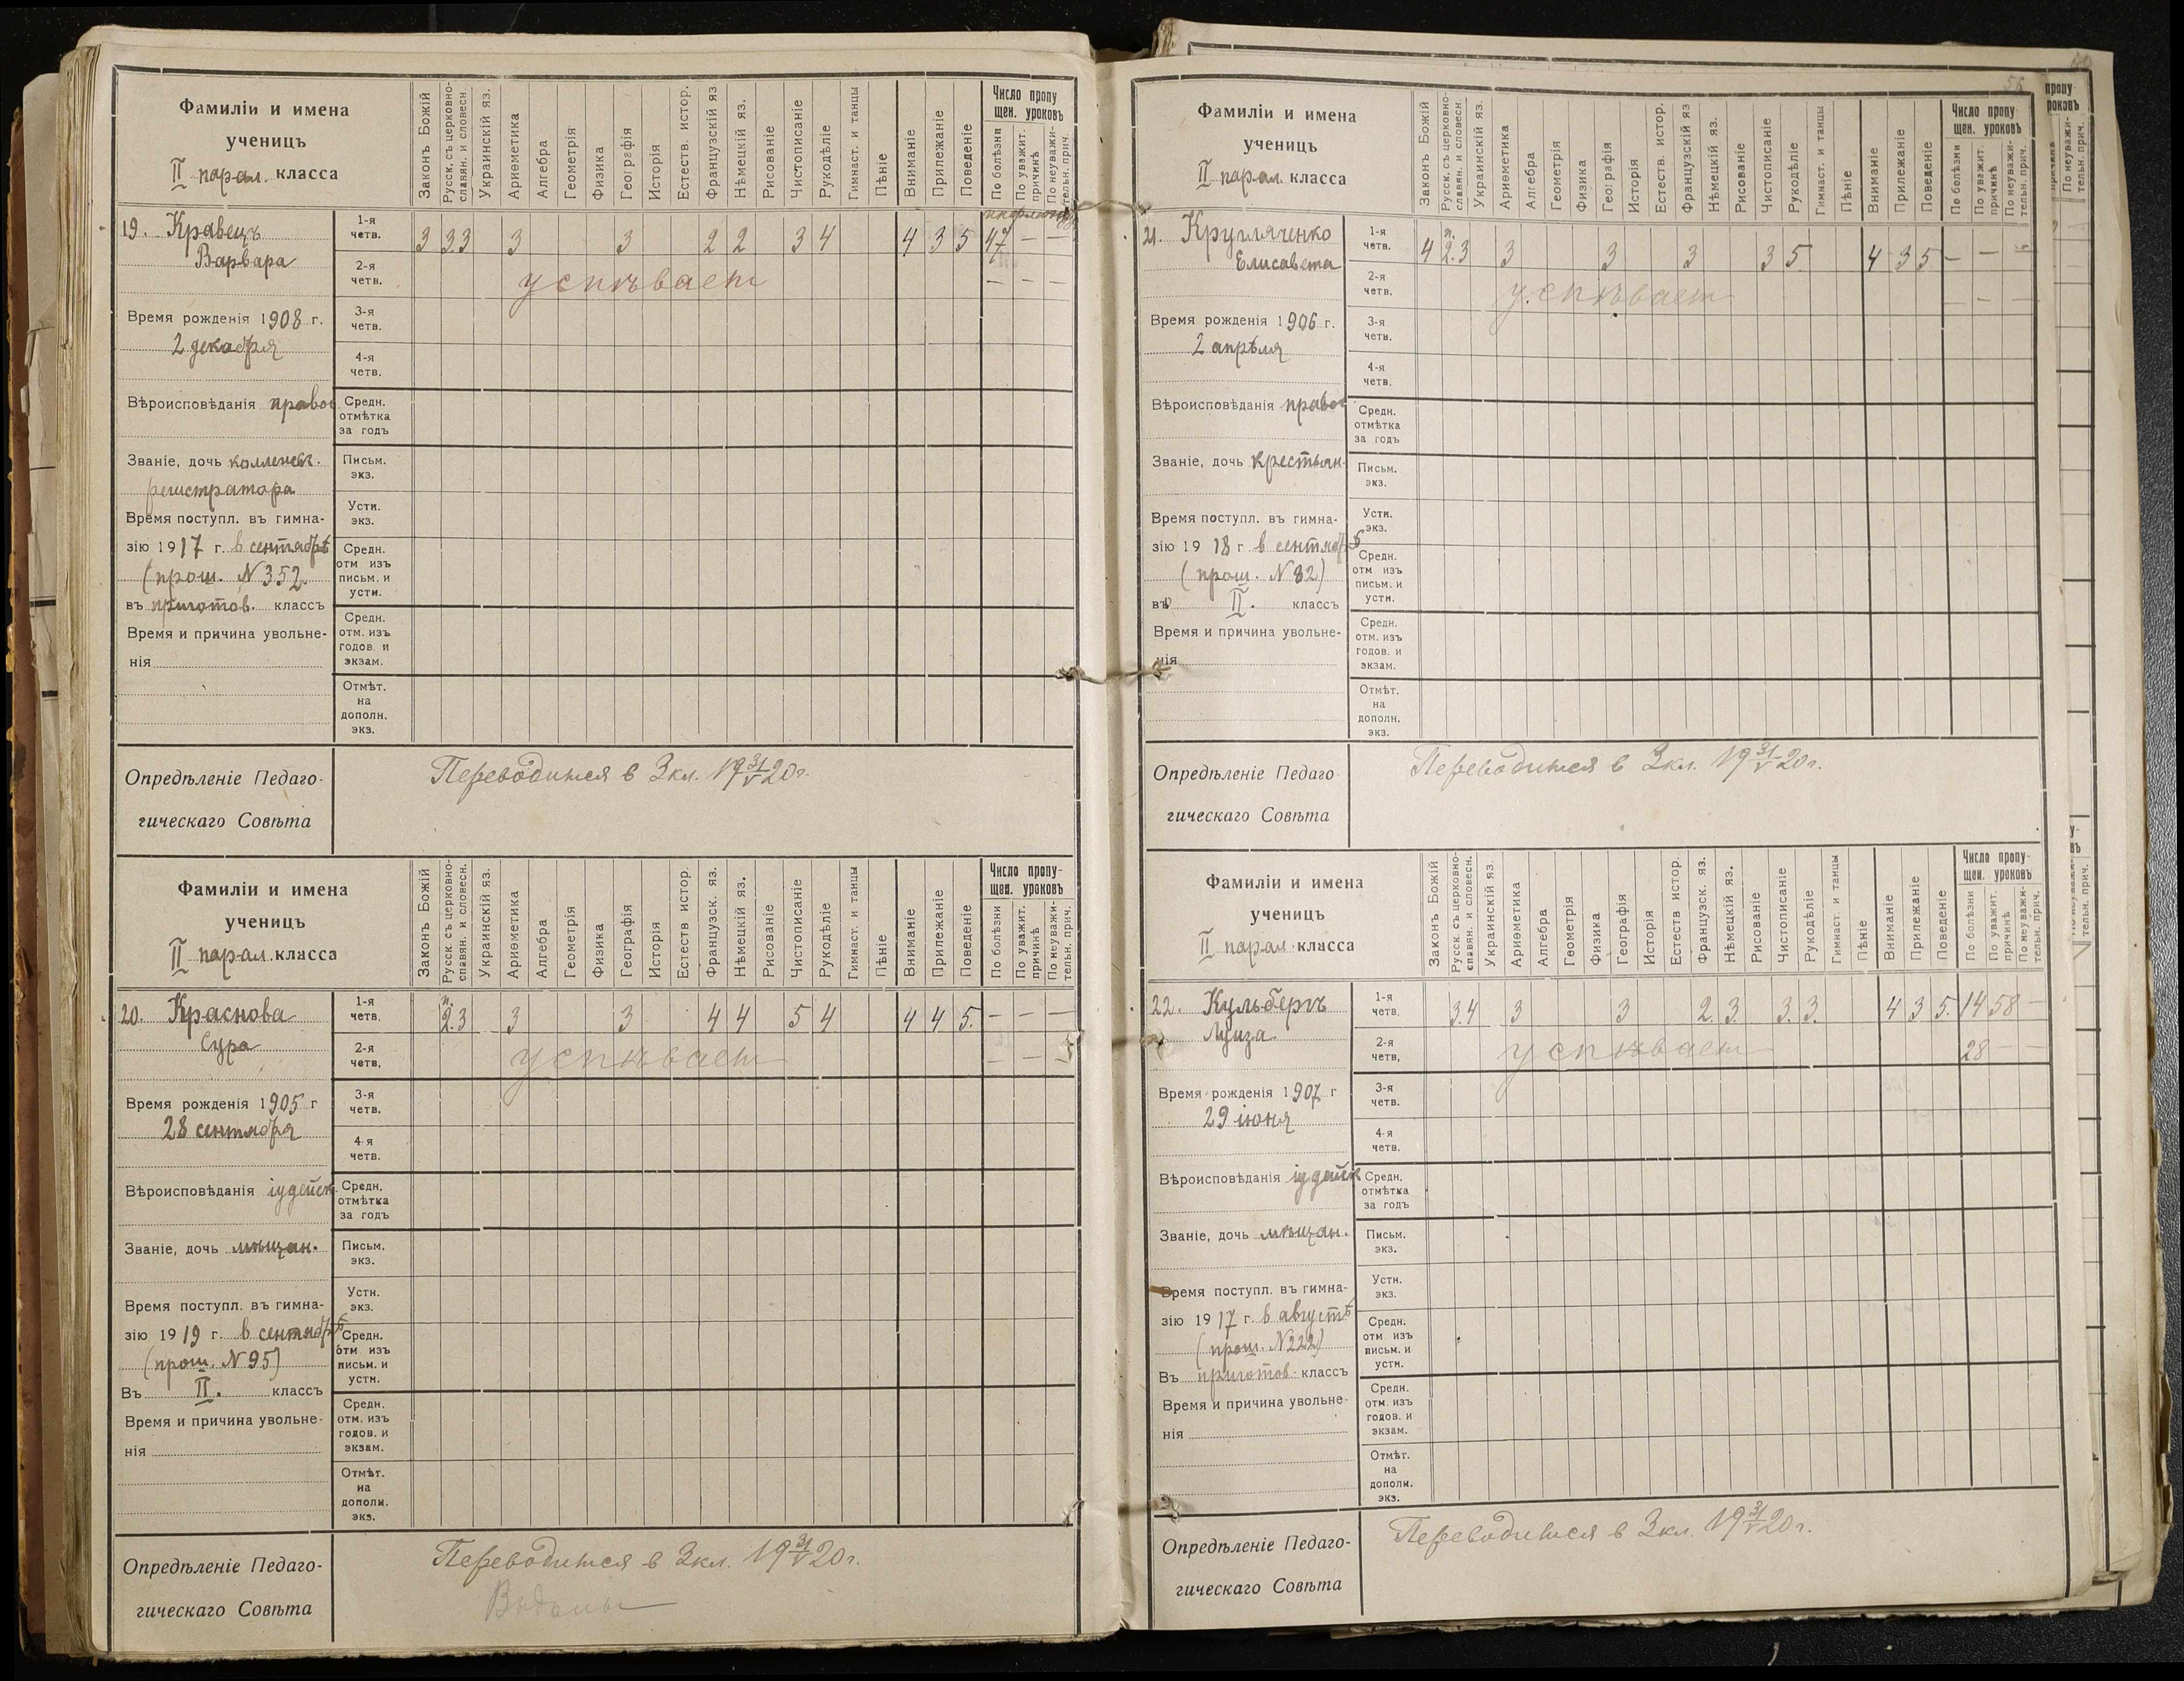 Фамиліи и имена
ученицъ
II парал. класса
Законъ Божій
Русск. съ церковно-
славян. и словесн
Украинскій яз.
Ариѳметика
Алгебра
Геометрія
Физика
Географія
Исторія
Естеств. истор.
Французскій яз
Нѣмецкій яз.
Рисованіе
Чистописаніе
Рукодѣліе
Гимнаст. и танцы
Пѣніе
Вниманіе
Прилежаніе
Поведеніе
Число пропу
щен. уроковъ
По болѣзни
По уважит.
причинѣ
По неуважи-
тельн. прич.
19. Кравецъ
Варвара
1-я
четв.
3 3 3 3 3 2 2 3 4 4 3 5 47 — —
2-я
четв.
успѣвает
— — —
Время рожденія 1908 г.
2 декабря
3-я
четв.
4-я
четв.
Вѣроисповѣданія правос
Средн.
отмѣтка
за годъ
Званіе, дочь коллежск.
регистратора
Письм.
экз.
Время поступл. въ гимна-
зію 1917 г. в сентябрѣ
(прош. N 352.
въ приготов. классъ
Устн.
экз.
Средн.
отм изъ
письм. и
устн.
Время и причина увольне-
нія
Средн.
отм. изъ
годов. и
экзам.
Отмѣт.
на
дополн.
экз.
Опредѣленіе Педаго-
гическаго Совѣта
Переводится в 3 кл. 19 31/V 20 г.
Фамиліи и имена
ученицъ
II парал. класса
Законъ Божій
Русск. съ церковно-
славян. и словесн.
Украинскій яз.
Ариѳметика
Алгебра
Геометрія
Физика
Географія
Исторія
Естеств истор.
Французск. яз.
Нѣмецкій яз.
Рисованіе
Чистописаніе
Рукодѣліе
Гимнаст. и танцы
Пѣніе
Вниманіе
Прилежаніе
Поведеніе
Число пропу-
щен. уроковъ
По болѣзни
По уважит.
причинѣ
По неуважи-
тельн. прич.
20. Краснова
Сура
1-я
четв.
п.
2. 3 3 3 4 4 5 4 4 4 5. — — —
2-я
четв,
успѣвает
— —
Время рожденія 1905 г
28 сентября
3-я
четв.
4-я
четв.
Вѣроисповѣданія іудейск.
Средн.
отмѣтка
за годъ
Званіе, дочь мѣщан.
Письм.
экз.
Время поступл. въ гимна-
зію 1919 г. в сентябрѣ
(прош. N 95)
Въ II. классъ
Устн.
экз.
Средн.
отм изъ
письм. и
устн.
Время и причина увольне-
нія
Средн.
отм. изъ
годов. и
экзам.
Отмѣт.
на
дополн.
экз.
Опредѣленіе Педаго-
гическаго Совѣта
Переводится в 3 кл. 19 31/V 20 г.
Фамиліи и имена
ученицъ
II парал. класса
Законъ Божій
Русск. съ церковно-
славян. и словесн.
Украинскій яз.
Ариѳметика
Алгебра
Геометрія
Физика
Географія
Исторія
Естеств. истор.
Французскій яз
Нѣмецкій яз.
Рисованіе
Чистописаніе
Рукодѣліе
Гимнаст. и танцы
Пѣніе
Вниманіе
Прилежаніе
Поведеніе
Число пропу
щен. уроковъ
По болѣзни
По уважит.
причинѣ
По неуважи-
тельн. прич.
21. Кругляченко
Елисавета
1-я
четв.
п.
4 2. 3 3 3 3 3 5 4 3 5 — —
2-я
четв,
успѣвает
— — —
Время рожденія 1906 г.
2 апрѣля
3-я
четв.
4-я
четв.
Вѣроисповѣданія правос
Средн.
отмѣтка
за годъ
Званіе, дочь крестьян.
Письм.
экз.
Время поступл. въ гимна-
зію 19 18 г в сентябрѣ
(прош. N 82)
въ II. классъ
Устн.
экз.
Средн.
отм изъ
письм. и
устн.
Время и причина увольне-
нія
Средн.
отм. изъ
годов. и
экзам.
Отмѣт.
на
дополн.
экз.
Опредѣленіе Педаго
гическаго Совѣта
Переводится в 3 кл. 19 31/V 20 г.
Фамиліи и имена
ученицъ
II парал. класса
Законъ Божій
Русск. съ церковно-
славян. и словесн.
Украинскій яз.
Ариѳметика
Алгебра
Геометрія
Физика
Географія
Исторія
Естеств истор.
Французск. яз.
Нѣмецкій яз.
Рисованіе
Чистописаніе
Рукодѣліе
Гимнаст. и танцы
Пѣніе
Вниманіе
Прилежаніе
Поведеніе
Число пропу-
щен. уроковъ
По болѣзни
По уважит.
причинѣ
По неуважи-
тельн. прич.
22. Кульбергъ
Луиза
1-я
четв.
3. 4 3 3 2. 3. 3. 3. 4 3 5. 14 58 —
2-я
четв,
успѣвает
28 — —
Время рожденія 1907 г
29 іюня
3-я
четв.
4-я
четв.
Вѣроисповѣданія іудейск
Средн.
отмѣтка
за годъ
Званіе, дочь мѣщан.
Письм.
экз.
Время поступл. въ гимна-
зію 1917 г. в августѣ
(прош. N 222)
Въ приготов. классъ
Устн.
экз.
Средн.
отм изъ
письм. и
устн.
Время и причина увольне-
нія
Средн.
отм. изъ
годов. и
экзам.
Отмѣт.
на
дополн.
экз.
Опредѣленіе Педаго-
гическаго Совѣта
Переводится в 3 кл. 19 31/V 20 г.